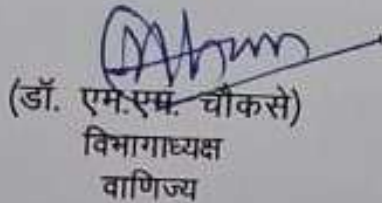 (डॉ. एम.एम. चौकसे)
विभागाध्यक्ष
वाणिज्य